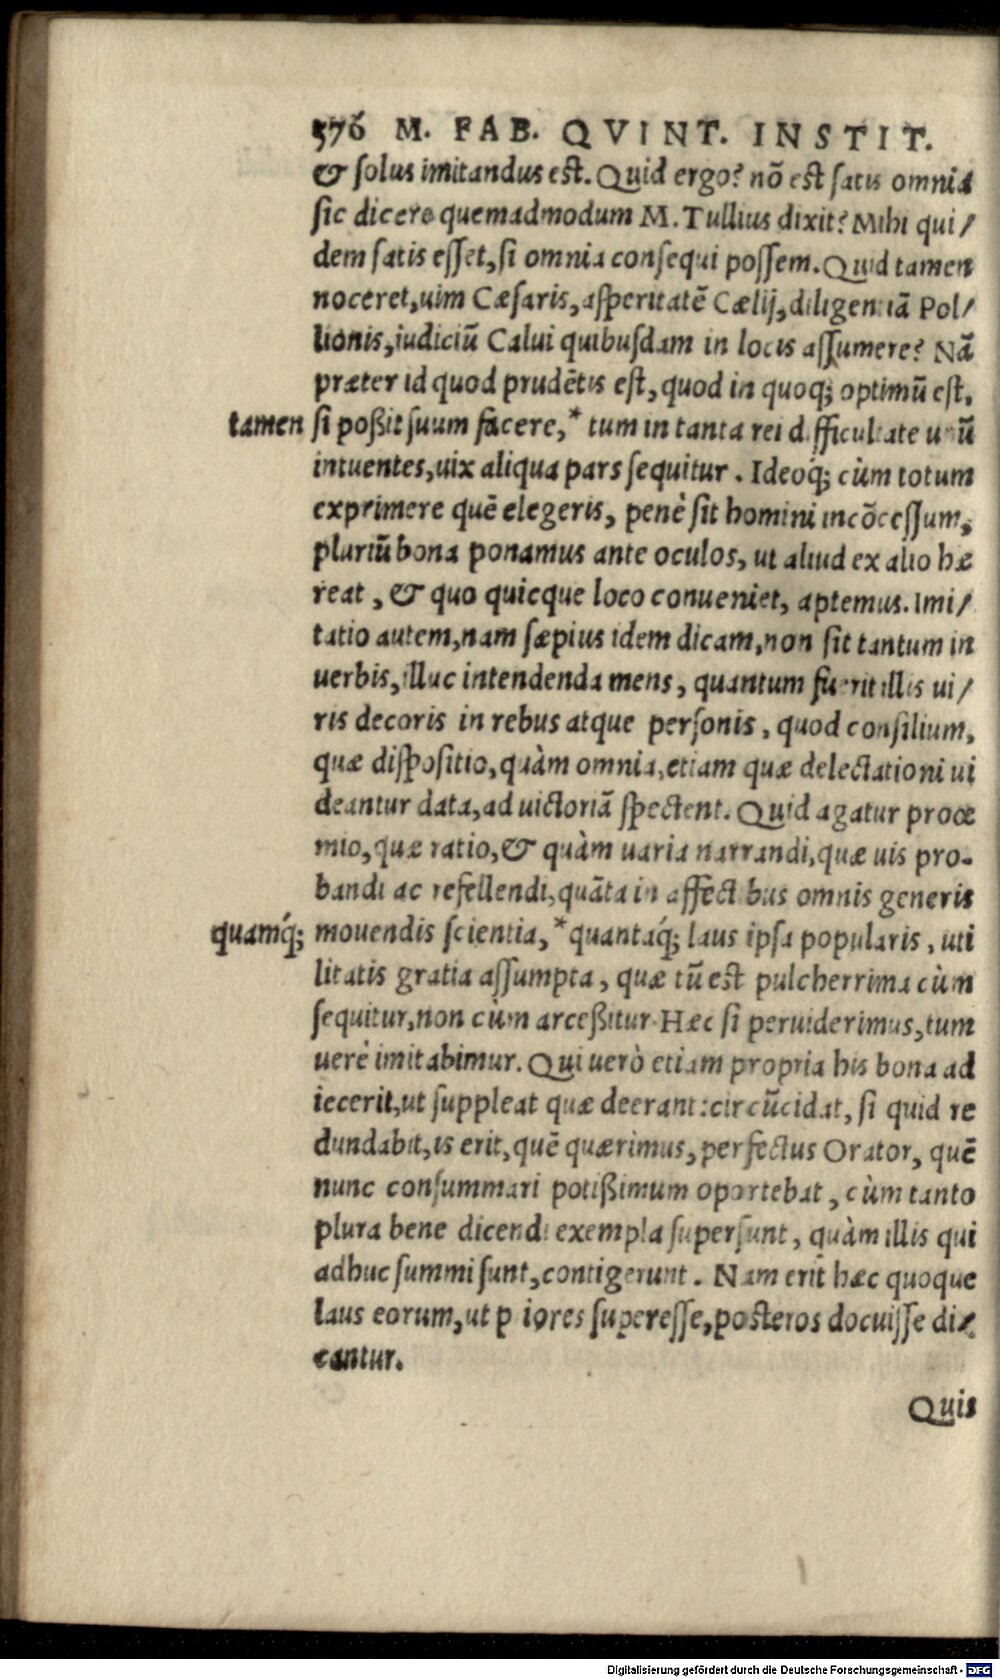 576 M. FAB. QVINT. INSTIT.
& solus imitandus est. Quid ergo? nõ est satis omnia
sic dicere quemadmodum M. Tullius dixit? Mihi qui/
dem satis esset, si omnia consequi possem. Quid tamen
noceret, uim Cæsaris, asperitatẽ Cælij, diligentiã Pol/
lionis, iudiciũ Calui quibusdam in locis assumere? Nã
præter id quod prudẽtis est, quod in quoq; optimũ est,
tamen si poßit suum facere, * tum in tanta rei difficultate unũ
intuentes, uix aliqua pars sequitur. Ideoq́; cùm totum
exprimere quẽ elegeris, penè sit homini incõcessum,
pluriũ bona ponamus ante oculos, ut aliud ex alio hæ
reat, & quo quicque loco conueniet, aptemus. Imi/
tatio autem, nam sæpius idem dicam, non sit tantum in
uerbis, illuc intendenda mens, quantum fuerit illis ui/
ris decoris in rebus atque personis, quod consilium,
quæ dispositio, quàm omnia, etiam quæ delectationi ui
deantur data, ad uictoriã spectent. Quid agatur procæ
mio, quæ ratio, & quàm uaria narrandi, quæ uis pro-
bandi ac refellendi, quãta in affectibus omnis generis
quamq́; mouendis scientia, * quantaq́; laus ipsa popularis, uti
litatis gratia assumpta, quæ tũ est pulcherrima cùm
sequitur, non cùm arceßitur. Hæc si peruiderimus, tum
uerè imitabimur. Qui uerò etiam propria his bona ad
iecerit, ut suppleat quæ deerant: circũcidat, si quid re
dundabit, is erit, quẽ quærimus, perfectus Orator, quẽ
nunc consummari potißimum oportebat, cùm tanto
plura bene dicendi exempla supersunt, quàm illis qui
adhuc summi sunt, contigerunt. Nam erit hæc quoque
laus eorum, ut priores superesse, posteros docuisse di/
cantur.
Quis
Digitalisierung gefördert durch die Deutsche Forschungsgemeinschaft - DFG